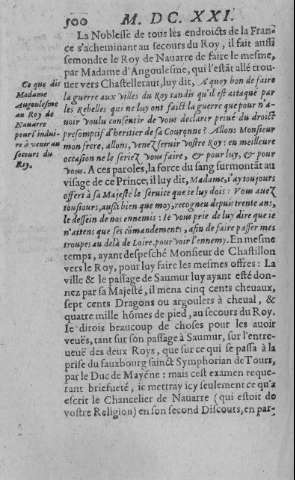 500 M. DC. XXI.
La Noblesse de tous les endroicts de la Fran-
ce s'acheminant au secours du Roy, il fait aussi
semondre le Roy de Nauarre de faire le mesme,
par Madame d'Angoulesme, qui l'estāt allé trou-
uer vers Chastelleraut, luy dit, A quoy bon de faire
la guerre aux villes du Roy tandis qu'il est attaqué par
les Rebelles qui ne luy ont faict la guerre que pour n'a-
uoir voulu consentir de vous declarer priué du droict
presomptif d'heritier de sa Couronne? Allons Monsieur
mon frere, allons, venez seruir vostre Roy: en meilleure
occasion ne le seriez vous faire, & pour luy, & pour
vous. A ces paroles, la force du sang surmontāt au
visage de ce Prince, il luy dit, Madame, i'ay tousiours
offert à sa Majesté le seruice que ie luy dois: Vous auez
tousiours, aussi bien que moy, recogneu depuis trente ans,
le dessein de nos ennemis: ie vous prie de luy dire que ie
n'attens que ses cōmandements, afin de faire passer mes
troupes au delà de Loire, pour voir l'ennemy. En mesme
temps, ayant despesché Monsieur de Chastillon
vers le Roy, pour luy faire les mesmes offres: La
ville & le passage de Saumur luy ayant esté don-
nez par sa Majesté, il mena cinq cents cheuaux,
sept cents Dragons ou argoulets à cheual, &
quatre mille hōmes de pied, au secours du Roy.
Ie dirois beaucoup de choses pour les auoir
veuës, tant sur son passage à Saumur, sur l'entre-
ueuë des deux Roys, que sur ce qui se passa à la
prise du fauxbourg sainct Symphorian de Tours,
par le Duc de Mayēne: mais cest examen reque-
rant briefueté, ie mettray icy seulement ce qu'a
escrit le Chancelier de Nauarre (qui estoit de
vostre Religion) en son second Discours, en par-
Ce que dit
Madame
Angoulesme
au Roy de
Nauarre
pour l'indui-
re à venir au
secours du
Roy.